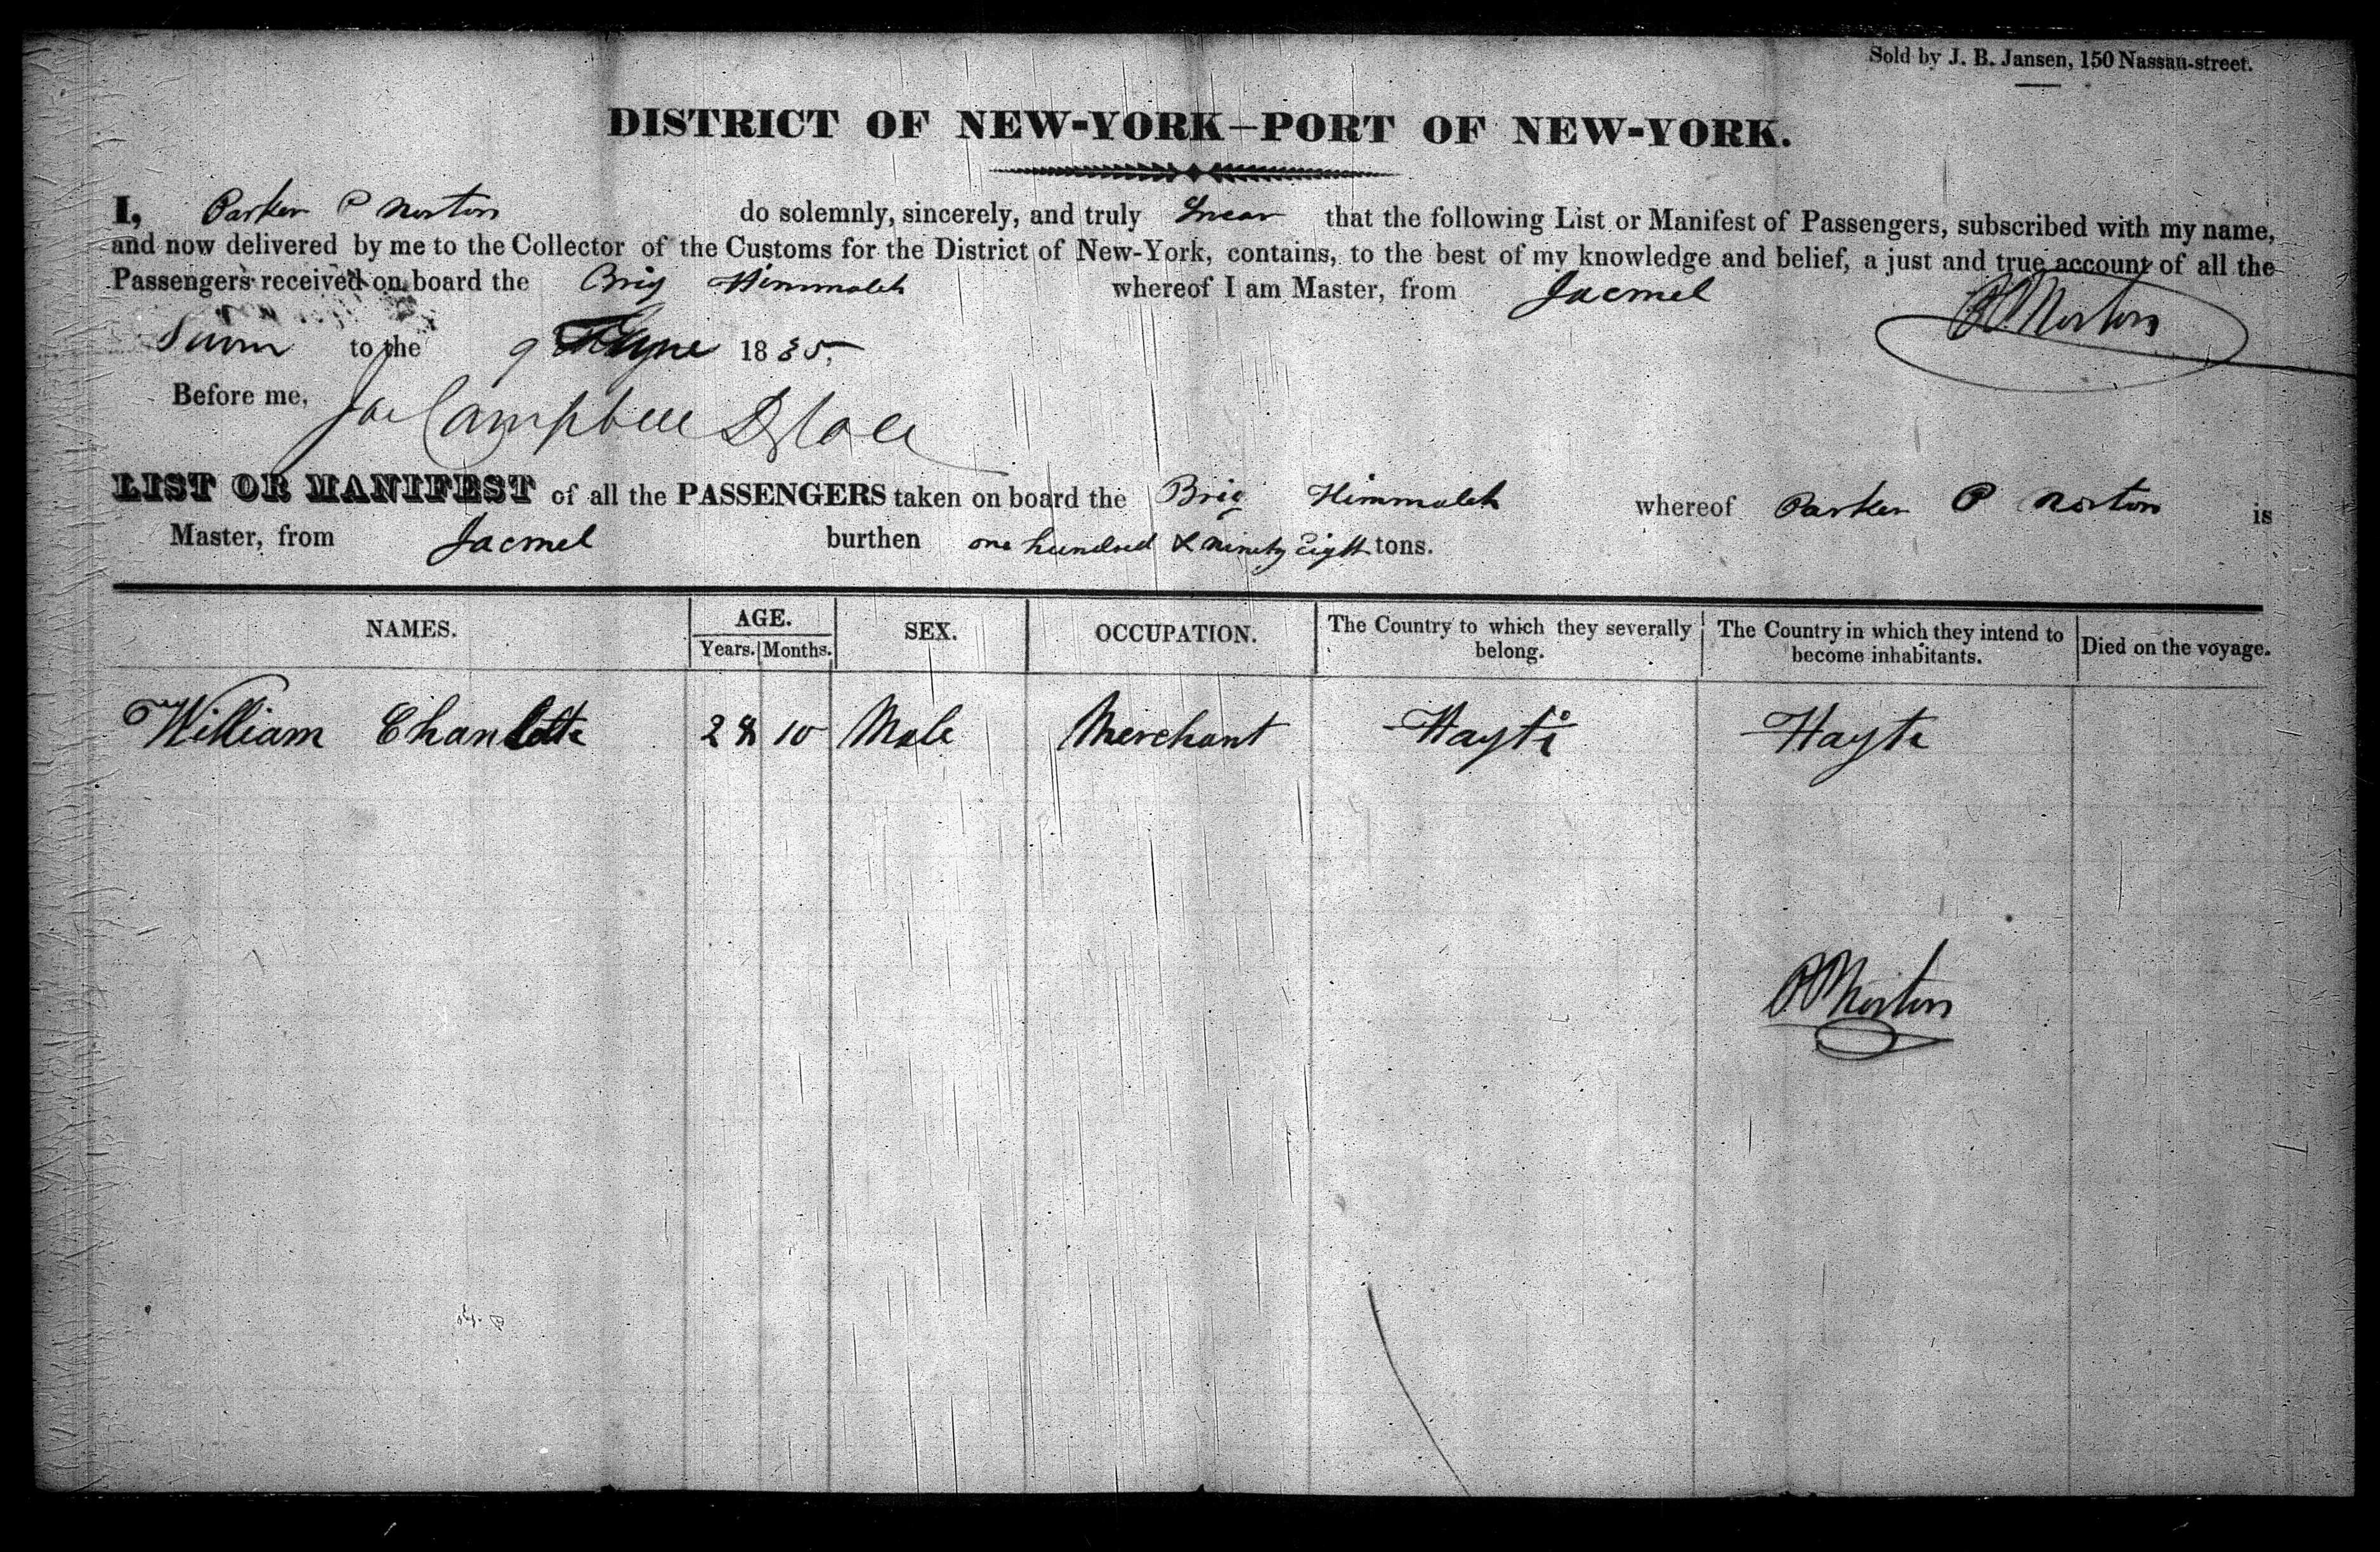 Sold by J. B. Jansen, 150 Nassau-street.
DISTRICT OF NEW-YORK—PORT OF NEW-YORK.
I, Parker P Norton do solemnly, sincerely, and truly Swear that the following List or Manifest of Passengers, subscribed with my name,
and now delivered by me to the Collector of the Customs for the District of New-York, contains, to the best of my knowledge and belief, a just and true account of all the
Passengers received on board the Brig Himmaleh whereof I am Master, from Jacmel
P P Norton
Sworn to the 9 1835,
Before me, Campbell
LIST OR MANIFEST of all the PASSENGERS taken on board the Brig Himmaleh whereof Parker P Norton is
Master, from Jacmel burthen one hundred & ninety Eight tons.
NAMES. AGE. Years. Months. SEX. OCCUPATION. The Country to which they severally belong. The Country in which they intend to become inhabitants. Died on the voyage.
William Charlotte 28 10 Male Merchant Hayti Hayti
P P Norton